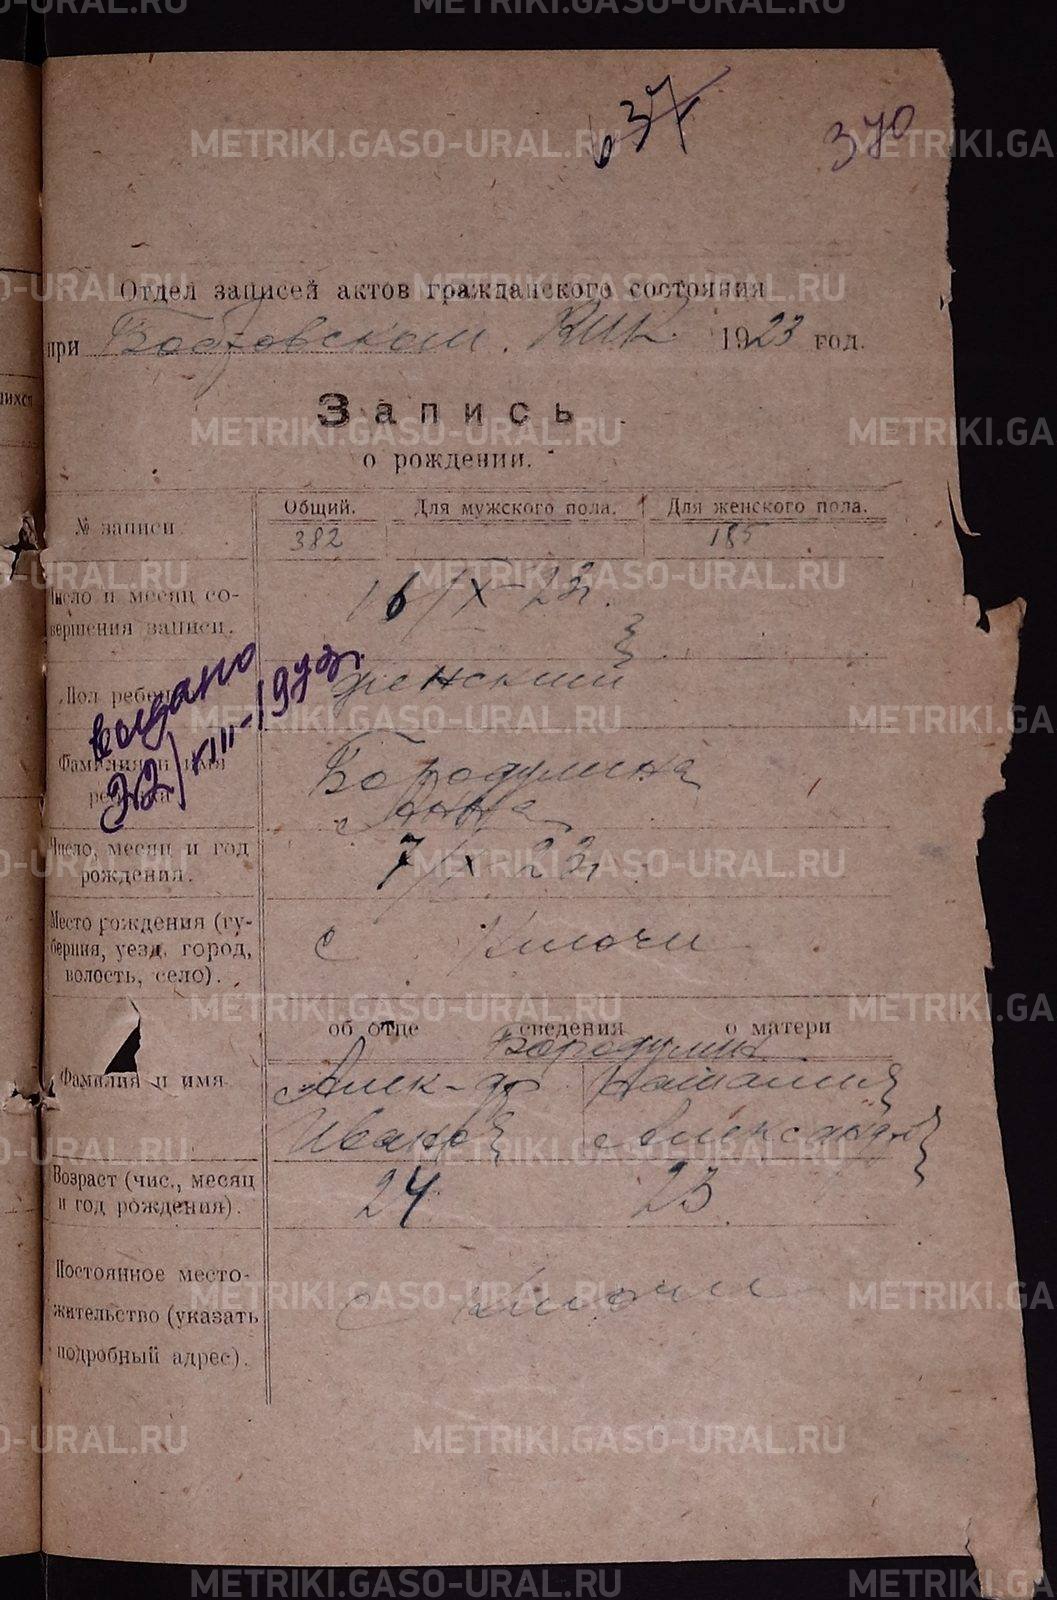 370
Отдел записей актов гражданского состояния
при Бобровском. ВИК. 1923 год.
Запись
о рождении.
№ записи. Общий. Для мужского пола. Для женского пола.
382 185
Число и месяц совершения записи. 16/X-23г.
Пол ребенка женский
выдано
22/VIII-1973г.
Фамилия и имя ребенка Бородулина
Анна
Число, месяц и год рождения. 7/X 23г.
Место рождения (губерния, уезд, город, волость, село). с Ключи
об отце сведения о матери
Бородулины
Фамилия и имя Алек-др Наталия
Иванов Александр
Возраст (чис., месяц и год рождения). 24 23
Постоянное местожительство (указать подробный адрес). с Ключи
METRIKI.GASO-URAL.RU